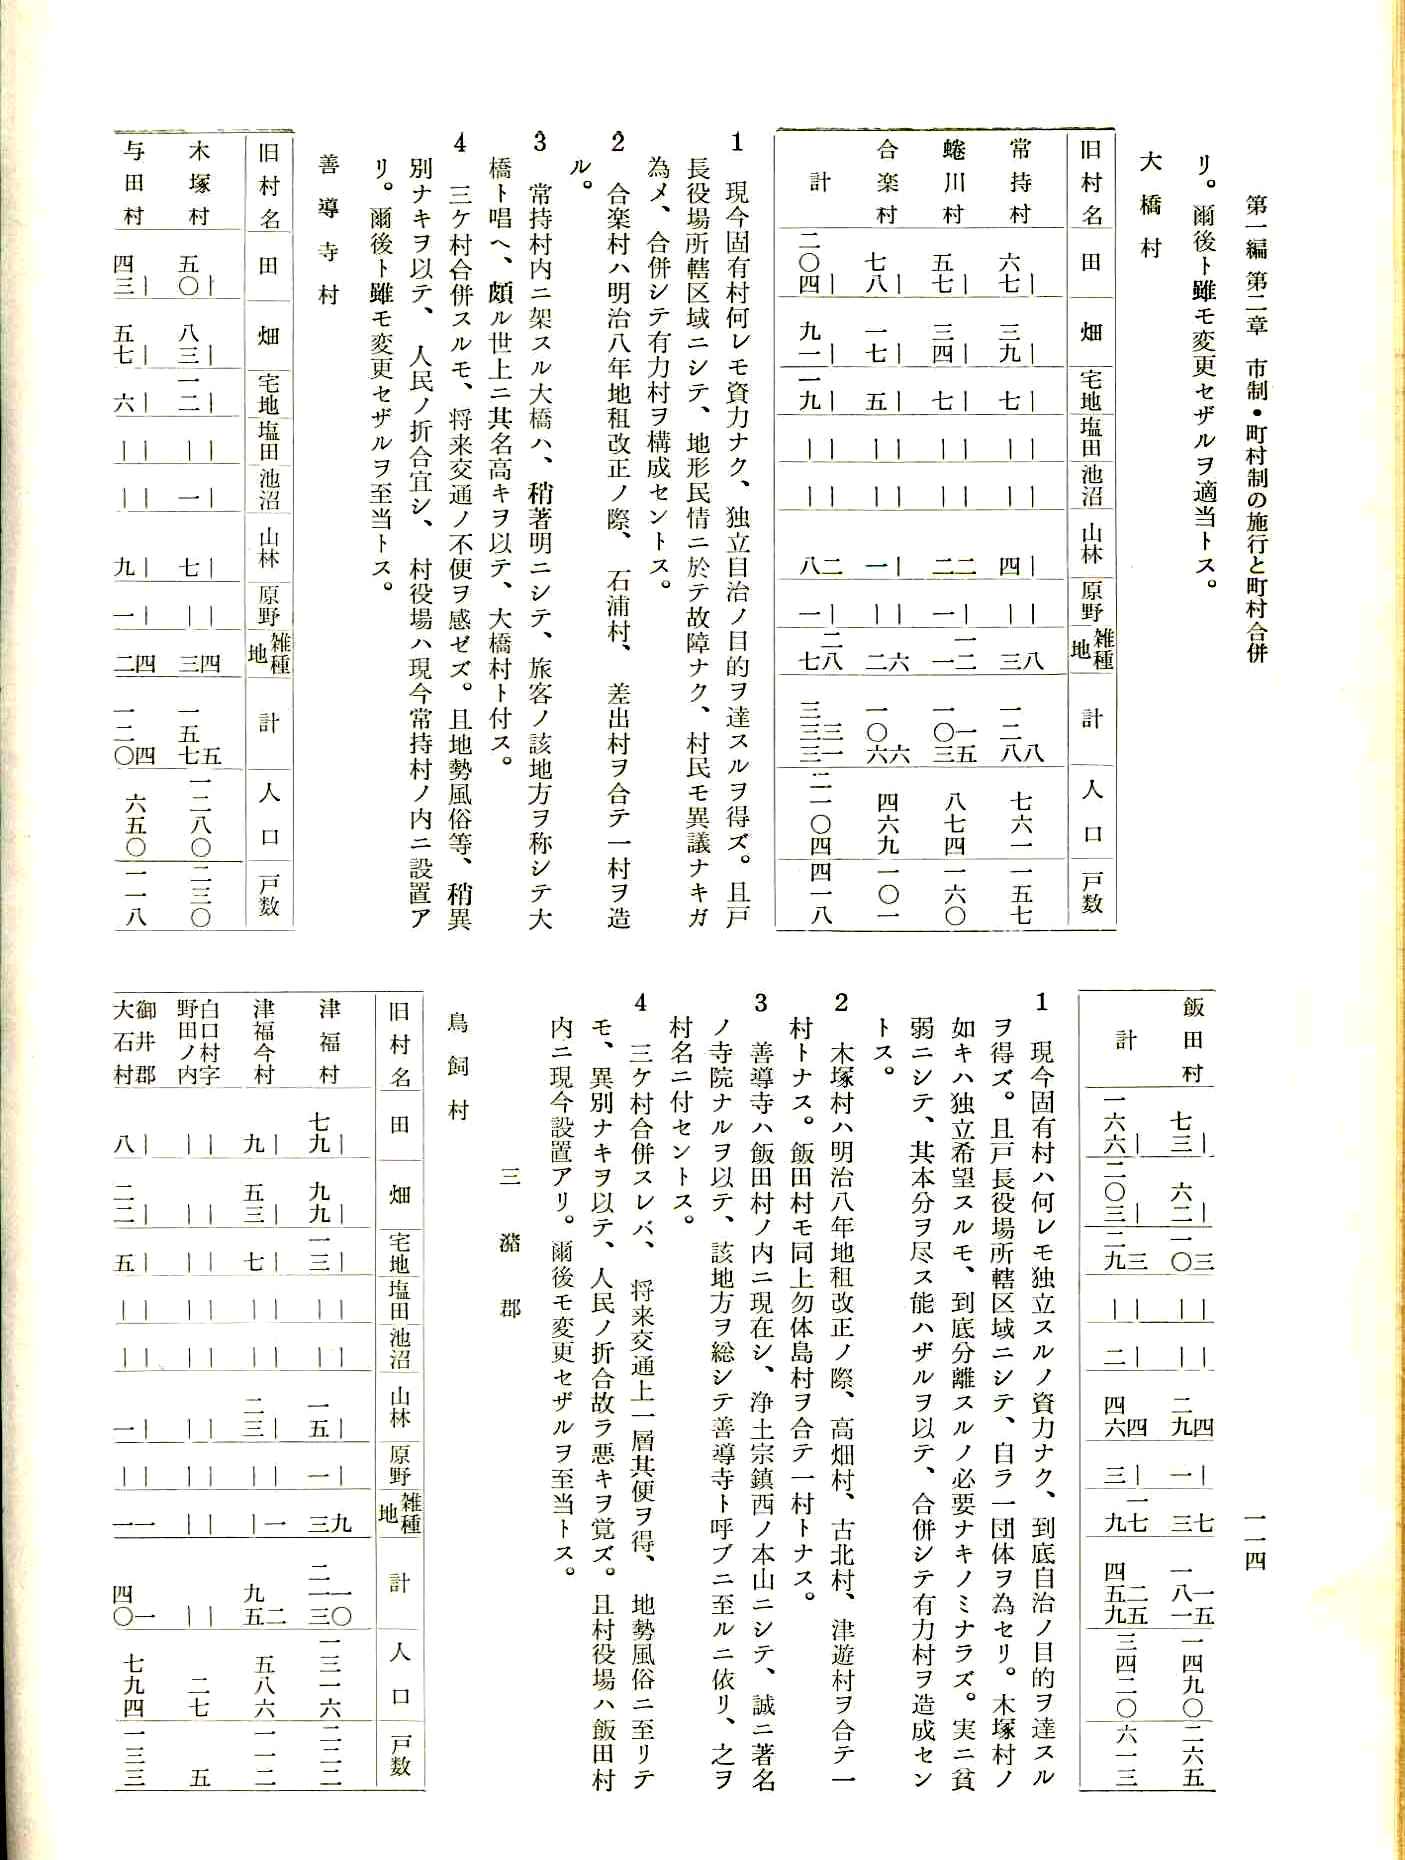 第一編 第二章　市制・町村制の施行と町村合併
一一四
リ。爾後ト雖モ変更セザルヲ適当トス。
大橋村
旧村名 田 畑 宅地 塩田 池沼 山林 原野 雑種地 計 人口 戸数
常持村 六七｜ 三九｜ 七｜ ｜｜ ｜｜ 四｜ ｜｜ 三八 一二八八 七六一 一五七
蜷川村 五七｜ 三四｜ 七｜ ｜｜ ｜｜ 二二 一｜ 一一二 一〇三一五 八七四 一六〇
合楽村 七八｜ 一七｜ 五｜ ｜｜ ｜｜ 一｜ ｜｜ 二六 一〇六六 四六九 一〇一
計 二〇四｜ 九一｜ 一九｜ ｜｜ ｜｜ 八二 一｜ 七二八 三三三三一 二一〇四 四一八
1　現今固有村何レモ資力ナク、独立自治ノ目的ヲ達スルヲ得ズ。且戸
長役場所轄区域ニシテ、地形民情ニ於テ故障ナク、村民モ異議ナキガ
為メ、合併シテ有力村ヲ構成セントス。
2　合楽村ハ明治八年地租改正ノ際、石浦村、差出村ヲ合テ一村ヲ造
ル。
3　常持村内ニ架スル大橋ハ、稍著明ニシテ、旅客ノ該地方ヲ称シテ大
橋ト唱ヘ、頗ル世上ニ其名高キヲ以テ、大橋村ト付ス。
4　三ケ村合併スルモ、将来交通ノ不便ヲ感ゼズ。且地勢風俗等、稍異
別ナキヲ以テ、人民ノ折合宜シ、村役場ハ現今常持村ノ内ニ設置ア
リ。爾後ト雖モ変更セザルヲ至当トス。
善導寺村
旧村名 田 畑 宅地 塩田 池沼 山林 原野 雑種地 計 人口 戸数
木塚村 五〇｜ 八三｜ 一二｜ ｜｜ 一｜ 七｜ ｜｜ 三四 一五七五 一二八〇 二三〇
与田村 四三｜ 五七｜ 六｜ ｜｜ ｜｜ 九｜ 一｜ 二四 一二〇四 六五〇 一一八
飯田村 七三｜ 六二｜ 一〇三 ｜｜ ｜｜ 二九四 一｜ 三七 一八一一五 一四九〇 二六五
計 一六六｜ 二〇三｜ 二九三 ｜｜ 二｜ 四六四 三｜ 九一七 四五九二五 三四二〇 六一三
1　現今固有村ハ何レモ独立スルノ資力ナク、到底自治ノ目的ヲ達スル
ヲ得ズ。且戸長役場所轄区域ニシテ、自ラ一団体ヲ為セリ。木塚村ノ
如キハ独立希望スルモ、到底分離スルノ必要ナキノミナラズ。実ニ貧
弱ニシテ、其本分ヲ尽ス能ハザルヲ以テ、合併シテ有力村ヲ造成セン
トス。
2　木塚村ハ明治八年地租改正ノ際、高畑村、古北村、津遊村ヲ合テ一
村トナス。飯田村モ同上勿体島村ヲ合テ一村トナス。
3　善導寺ハ飯田村ノ内ニ現在シ、浄土宗鎮西ノ本山ニシテ、誠ニ著名
ノ寺院ナルヲ以テ、該地方ヲ総シテ善導寺ト呼ブニ至ルニ依リ、之ヲ
村名ニ付セントス。
4　三ケ村合併スレバ、将来交通上一層其便ヲ得、地勢風俗ニ至リテ
モ、異別ナキヲ以テ、人民ノ折合故ラ悪キヲ覚ズ。且村役場ハ飯田村
内ニ現今設置アリ。爾後モ変更セザルヲ至当トス。
三潴郡
鳥飼村
旧村名 田 畑 宅地 塩田 池沼 山林 原野 雑種地 計 人口 戸数
津福村 七九｜ 九九｜ 一三｜ ｜｜ ｜｜ 一五｜ 一｜ 三九 二一三一〇 一三一六 二二二
津福今村 九｜ 五三｜ 七｜ ｜｜ ｜｜ 二三｜ ｜｜ ｜一 九五二 五八六 一一二
白口村字野田ノ内 ｜｜ ｜｜ ｜｜ ｜｜ ｜｜ ｜｜ ｜｜ ｜｜ ｜｜ 二七 五
御井郡大石村 八｜ 二二｜ 五｜ ｜｜ ｜｜ 一｜ ｜｜ 一一 四〇一 七九四 一三三